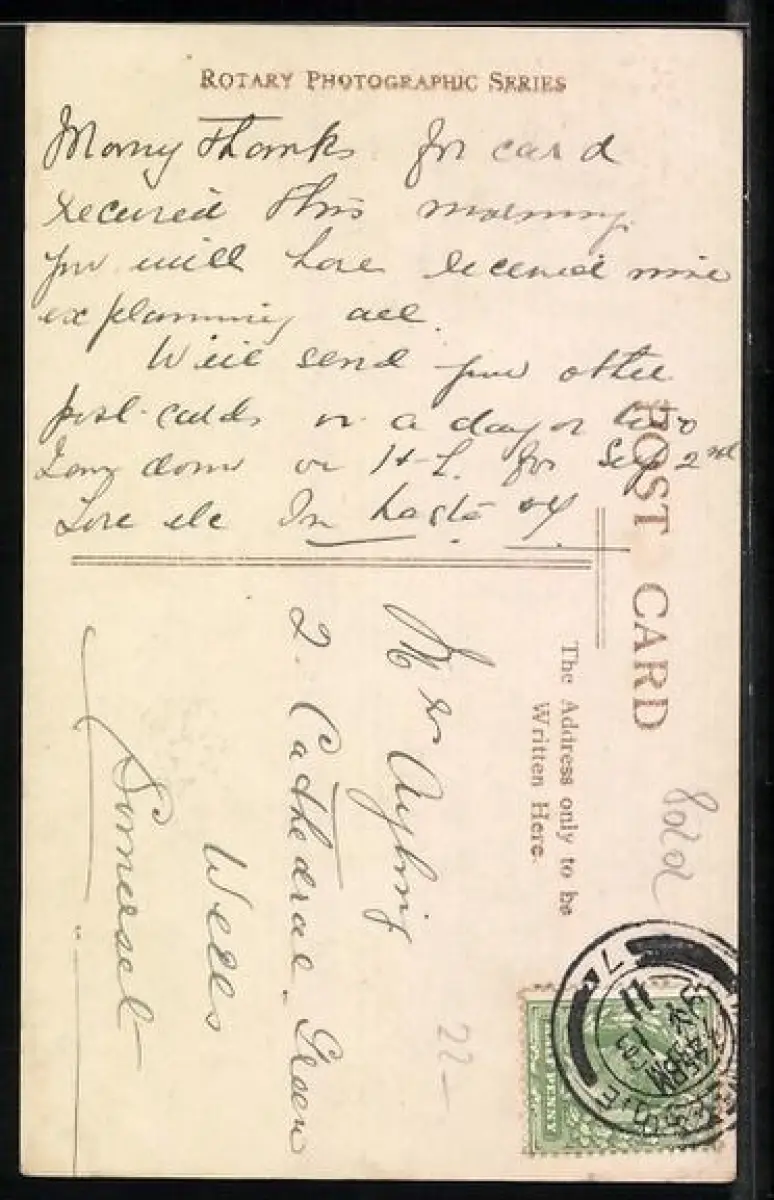 ROTARY PHOTOGRAPHIC SERIES
Many Thanks for card
received this morning.
you will have received mine
explaining all.
Will send you other
post-cards in a day or two
down on H-L. for Sep 2nd
Love etc In haste
POST CARD
The Address only to be
Written Here.
Mrs Ayling
2. Cathedral Green
Wells
Somerset
22-